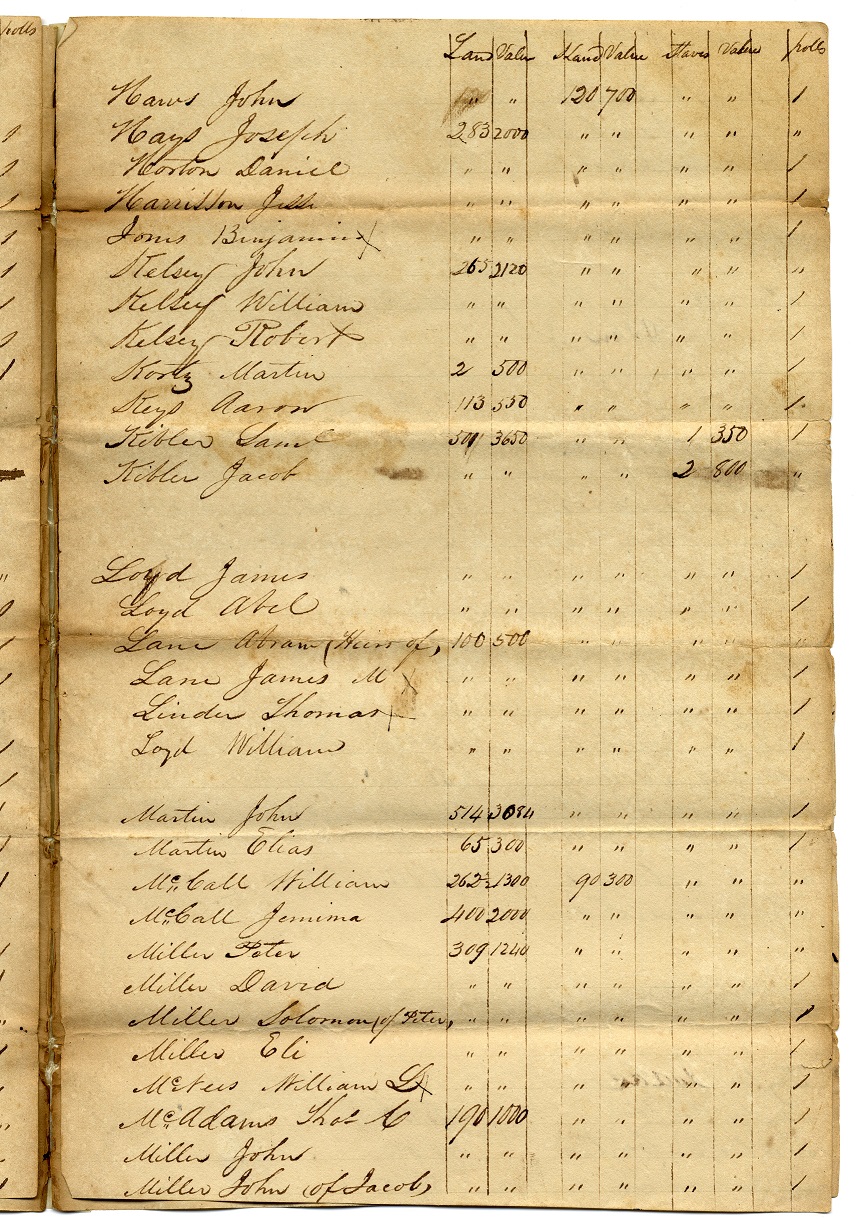 polls
Land Value Land Value Slaves Value polls
Haws John " " 120 700 " " 1
Hays Joseph 283 2000 " " " " "
Horton Daniel " " " " " " 1
Harrisson Jesse " " " " " " 1
Jones Benjamin x " " " " " " 1
Kelsey John 265 2120 " " " " "
Kelsey William " " " " " " 1
Kelsey Robert x " " " " " " 1
Kortz Martin 2 500 " " " " 1
Keys Aaron 113 550 " " " " 1
Kibler Saml 501 3650 " " 1 350 1
Kibler Jacob " " " " 2 800 "
Loyd James " " " " " " 1
Loyd Abel " " " " " " 1
Lane Abram (Heirs of) 100 500 " " " " "
Lane James M x " " " " " " 1
Linder Thomas x " " " " " " 1
Loyd William " " " " " " 1
Martin John 514 3084 " " " " 1
Martin Elias 65 300 " " " " 1
McCall William 262½ 1300 90 300 " " "
McCall Jemima 400 2000 " " " " "
Miller Peter 309 1240 " " " " "
Miller David " " " " " " 1
Miller Solomon (of Peter) " " " " " " 1
Miller Eli " " " " " " 1
McNees William x " " " " " " 1
McAdams Thos C 190 1000 " " " " 1
Miller John " " " " " " 1
Miller John (of Jacob) " " " " " " 1